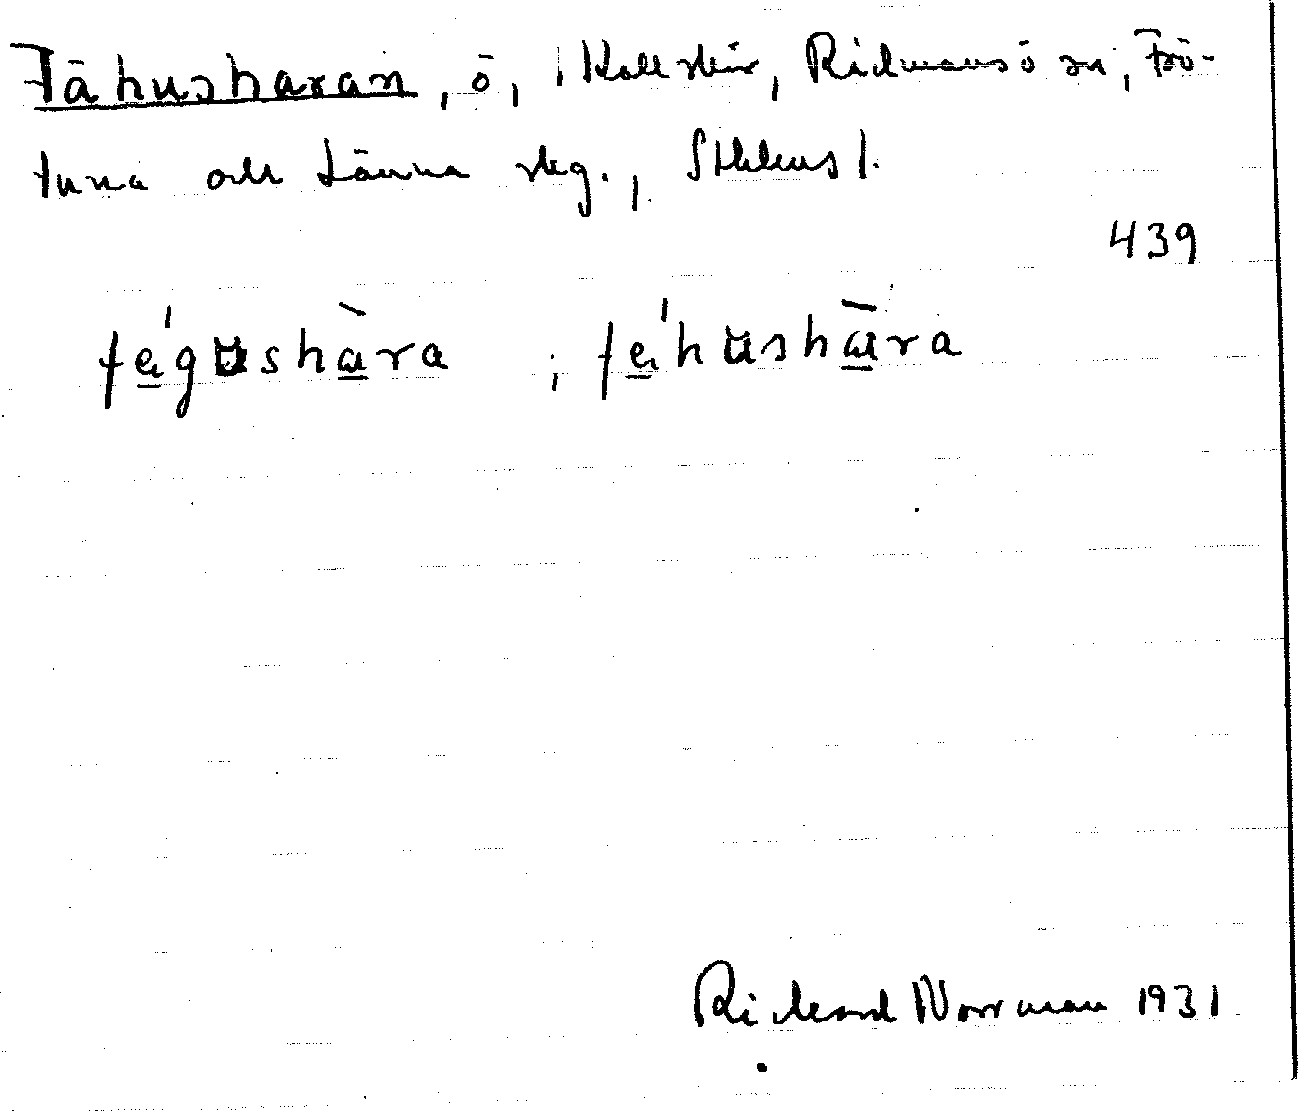 Fåhusharan, ö, i Kallskär, Rådmansö sn, Frö-
tuna och Länna skg., Sthlms l.
439
fǻgʉshàra ; fǻhʉshàra
Rickard Norrman 1931